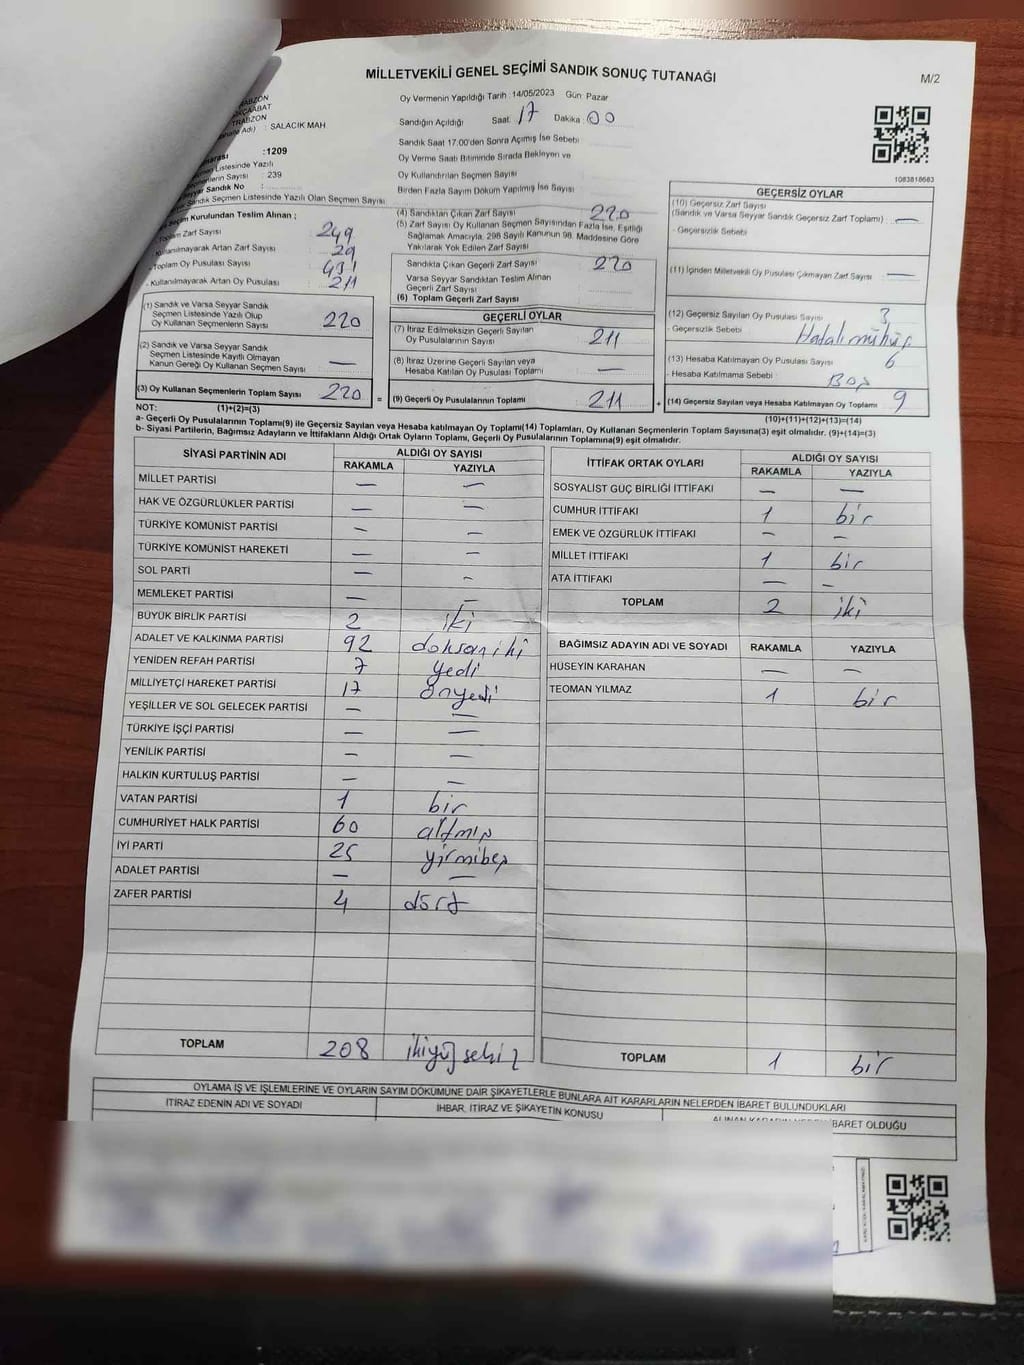 MİLLETVEKİLİ GENEL SEÇİMİ SANDIK SONUÇ TUTANAĞI
M/2
TRABZON
AKÇAABAT
TRABZON
: SALACIK MAH
:1209
Listesinde Yazılı
Sayısı : 239
Seyyar Sandık No :
Sandık Seçmen Listesinde Yazılı Olan Seçmen Sayısı
Oy Vermenin Yapıldığı Tarih :14/05/2023 Gün: Pazar
Sandığın Açıldığı Saat: 17 Dakika: 00
Sandık Saat 17.00'den Sonra Açılmış İse Sebebi
Oy Verme Saati Bitiminde Sırada Bekleyen ve
Oy Kullandırılan Seçmen Sayısı
Birden Fazla Sayım Döküm Yapılmış İse Sayısı
1083818683
Seçim Kurulundan Teslim Alınan ;
Toplam Zarf Sayısı 249
Kullanılmayarak Artan Zarf Sayısı 29
- Toplam Oy Pusulası Sayısı 431
- Kullanılmayarak Artan Oy Pusulası 211
(1) Sandık ve Varsa Seyyar Sandık
Seçmen Listesinde Yazılı Olup
Oy Kullanan Seçmenlerin Sayısı 220
(2) Sandık ve Varsa Seyyar Sandık
Seçmen Listesinde Kayıtlı Olmayan
Kanun Gereği Oy Kullanan Seçmen Sayısı —
(3) Oy Kullanan Seçmenlerin Toplam Sayısı 220 =
(4) Sandıktan Çıkan Zarf Sayısı 220
(5) Zarf Sayısı Oy Kullanan Seçmen Sayısından Fazla İse, Eşitliği
Sağlamak Amacıyla, 298 Sayılı Kanunun 98. Maddesine Göre
Yakılarak Yok Edilen Zarf Sayısı
Sandıkta Çıkan Geçerli Zarf Sayısı 220
Varsa Seyyar Sandıktan Teslim Alınan
Geçerli Zarf Sayısı
(6) Toplam Geçerli Zarf Sayısı
GEÇERLİ OYLAR
(7) İtiraz Edilmeksizin Geçerli Sayılan
Oy Pusulalarının Sayısı 211
(8) İtiraz Üzerine Geçerli Sayılan veya
Hesaba Katılan Oy Pusulası Toplamı —
(9) Geçerli Oy Pusulalarının Toplamı 211 +
GEÇERSİZ OYLAR
(10) Geçersiz Zarf Sayısı
(Sandık ve Varsa Seyyar Sandık Geçersiz Zarf Toplamı) —
- Geçersizlik Sebebi
(11) İçinden Milletvekili Oy Pusulası Çıkmayan Zarf Sayısı —
(12) Geçersiz Sayılan Oy Pusulası Sayısı 3
- Geçersizlik Sebebi : Hatalı mühür
(13) Hesaba Katılmayan Oy Pusulası Sayısı 6
- Hesaba Katılmama Sebebi : Boş
(14) Geçersiz Sayılan veya Hesaba Katılmayan Oy Toplamı 9
NOT: (1)+(2)=(3) (10)+(11)+(12)+(13)=(14)
a- Geçerli Oy Pusulalarının Toplamı(9) ile Geçersiz Sayılan veya Hesaba katılmayan Oy Toplamı(14) Toplamları, Oy Kullanan Seçmenlerin Toplam Sayısına(3) eşit olmalıdır. (9)+(14)=(3)
b- Siyasi Partilerin, Bağımsız Adayların ve İttifakların Aldığı Ortak Oyların Toplamı, Geçerli Oy Pusulalarının Toplamına(9) eşit olmalıdır.
SİYASİ PARTİNİN ADI ALDIĞI OY SAYISI
RAKAMLA YAZIYLA
MİLLET PARTİSİ — —
HAK VE ÖZGÜRLÜKLER PARTİSİ — —
TÜRKİYE KOMÜNİST PARTİSİ — —
TÜRKİYE KOMÜNİST HAREKETİ — —
SOL PARTİ — —
MEMLEKET PARTİSİ — —
BÜYÜK BİRLİK PARTİSİ 2 iki
ADALET VE KALKINMA PARTİSİ 92 doksan iki
YENİDEN REFAH PARTİSİ 7 yedi
MİLLİYETÇİ HAREKET PARTİSİ 17 onyedi
YEŞİLLER VE SOL GELECEK PARTİSİ — —
TÜRKİYE İŞÇİ PARTİSİ — —
YENİLİK PARTİSİ — —
HALKIN KURTULUŞ PARTİSİ — —
VATAN PARTİSİ 1 bir
CUMHURİYET HALK PARTİSİ 60 altmış
İYİ PARTİ 25 yirmibeş
ADALET PARTİSİ — —
ZAFER PARTİSİ 4 dört
TOPLAM 208 ikiyüz sekiz
İTTİFAK ORTAK OYLARI ALDIĞI OY SAYISI
RAKAMLA YAZIYLA
SOSYALİST GÜÇ BİRLİĞİ İTTİFAKI — —
CUMHUR İTTİFAKI 1 bir
EMEK VE ÖZGÜRLÜK İTTİFAKI — —
MİLLET İTTİFAKI 1 bir
ATA İTTİFAKI — —
TOPLAM 2 iki
BAĞIMSIZ ADAYIN ADI VE SOYADI RAKAMLA YAZIYLA
HÜSEYİN KARAHAN — —
TEOMAN YILMAZ 1 bir
TOPLAM 1 bir
OYLAMA İŞ VE İŞLEMLERİNE VE OYLARIN SAYIM DÖKÜMÜNE DAİR ŞİKAYETLERLE BUNLARA AİT KARARLARIN NELERDEN İBARET BULUNDUKLARI
İTİRAZ EDENİN ADI VE SOYADI İHBAR, İTİRAZ VE ŞİKAYETİN KONUSU ALINAN KARARIN NEDEN İBARET OLDUĞU